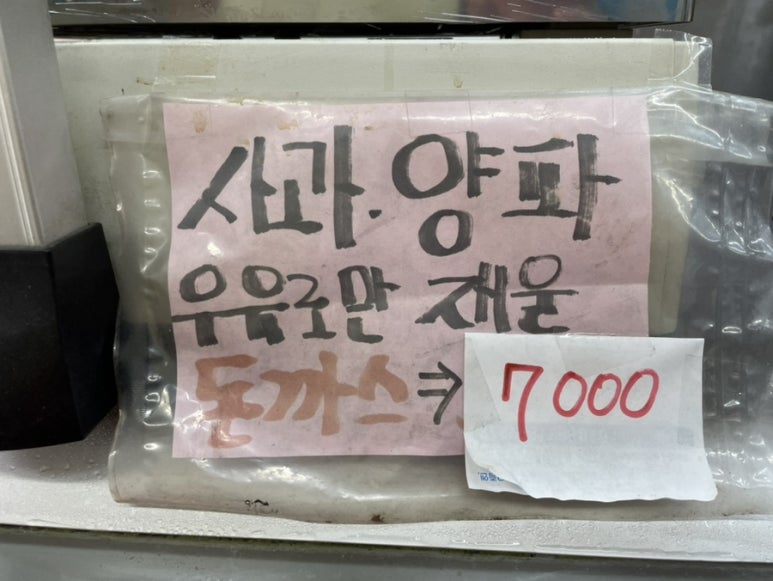 사과.양파
우유로만 재운
돈까스⇒ 7000